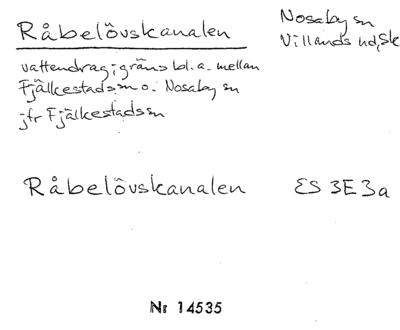 Råbelövskanalen
Nosaby sn
Villands hd, Sk
vattendrag; gräns bl. a. mellan
Fjälkestads sn o. Nosaby sn
jfr Fjälkestads sn
Råbelövskanalen ES 3E3a
Nr 14535